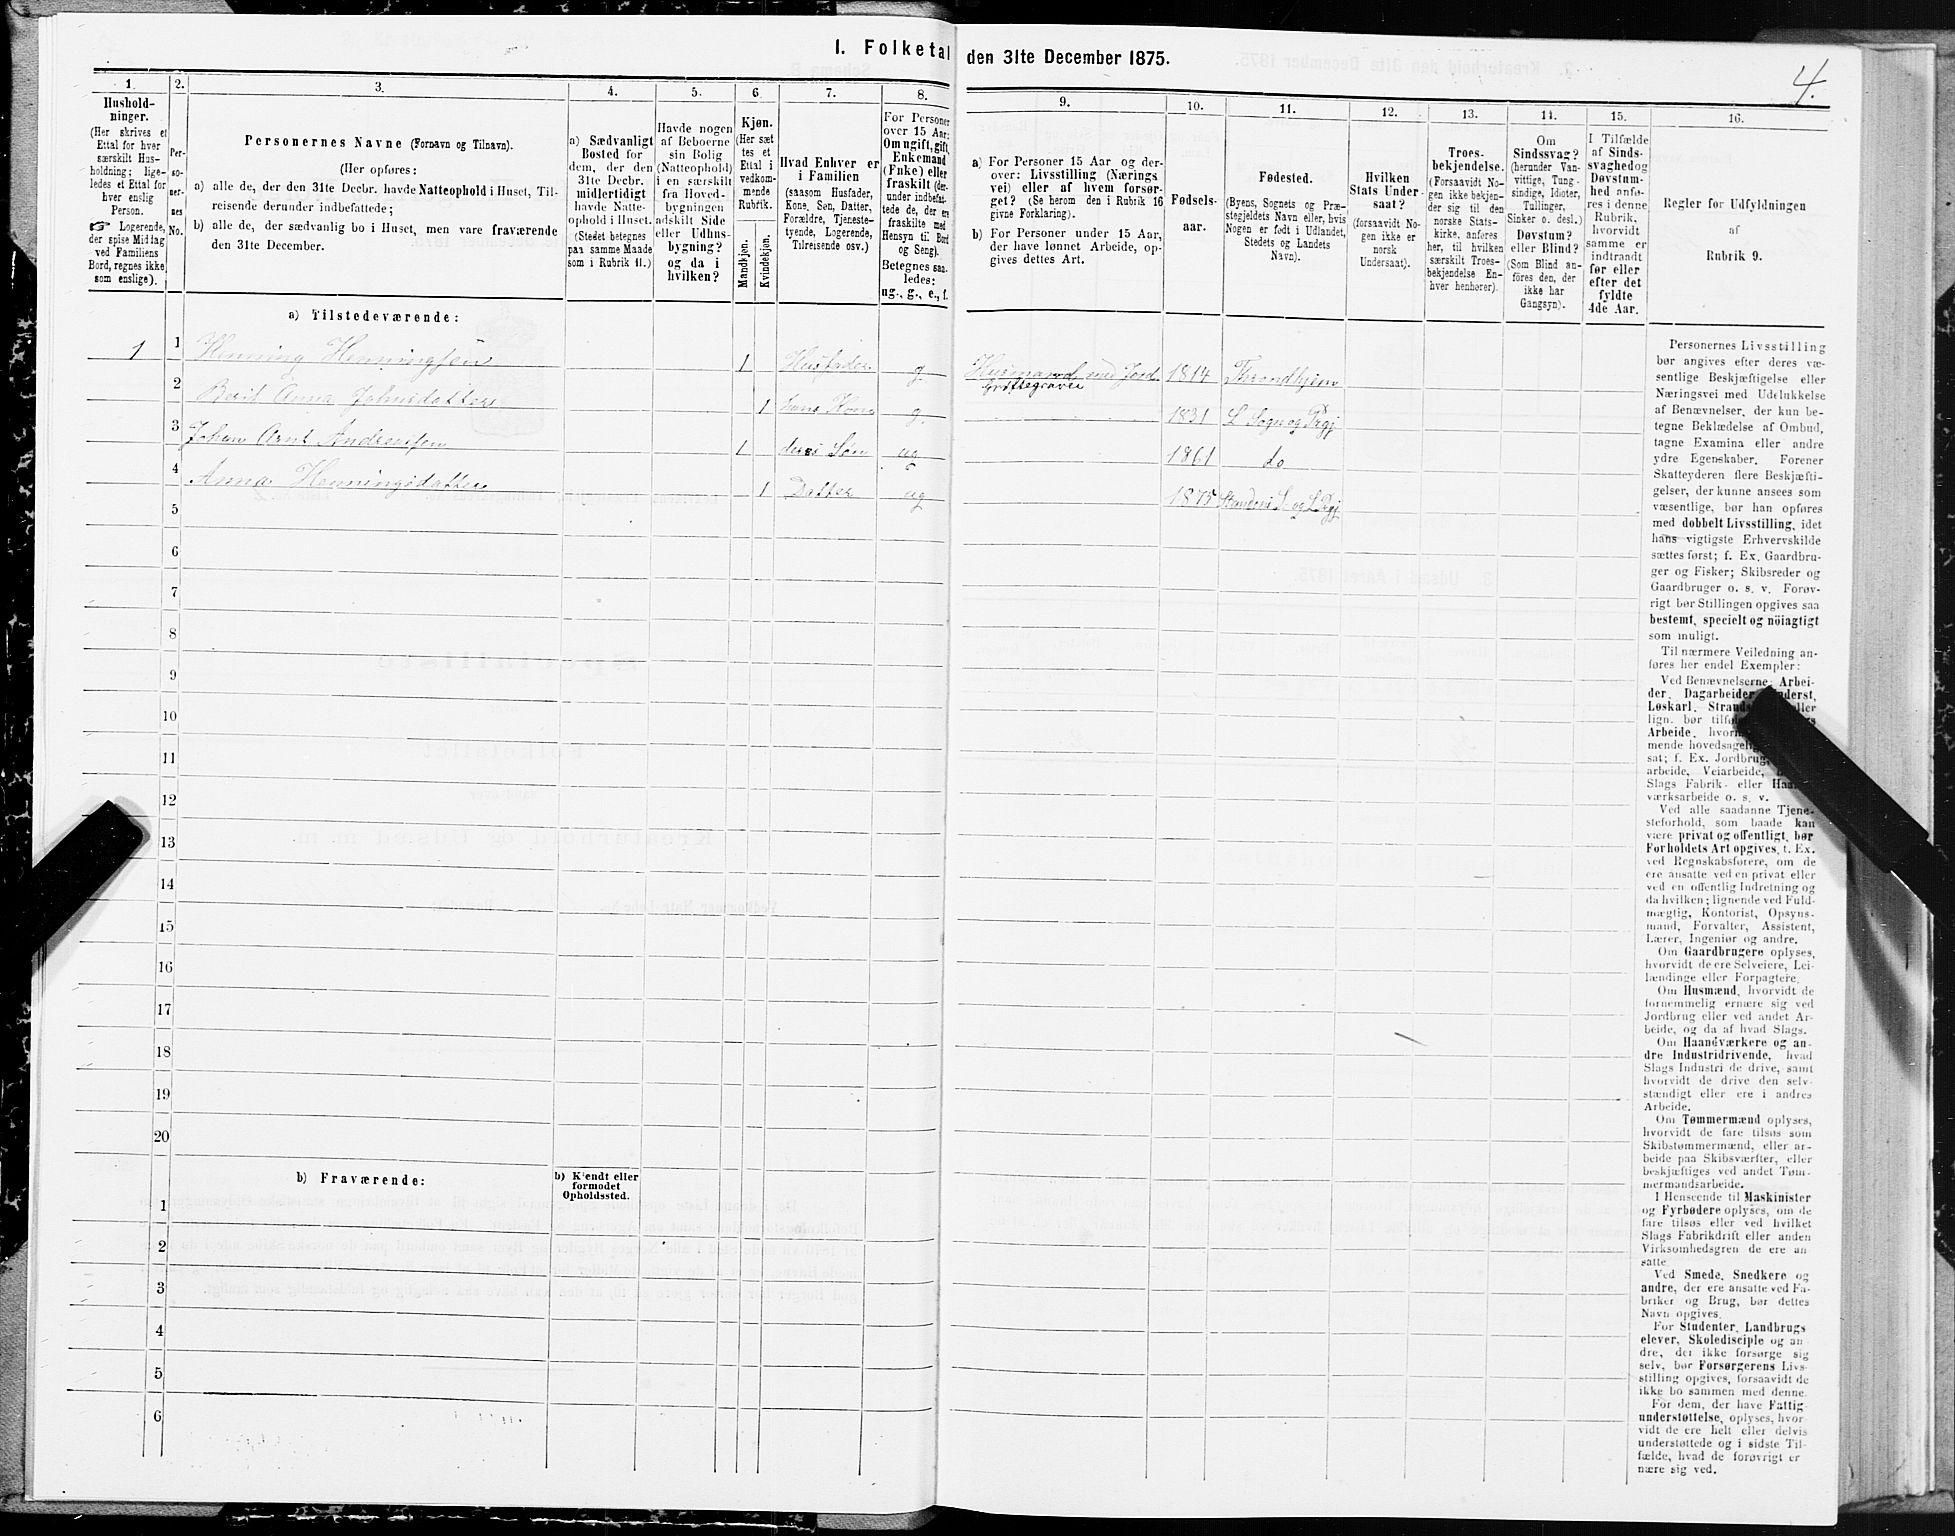 I. Folketal den 31te December 1875.
4.
1.
2.
3.
4.
5.
6
7.
8.
9.
10.
11.
12.
13.
14.
15.
16.
Hushold-
ninger.
(Her skrives et
Ettal for hver
særskilt Hus-
holdning; lige-
ledes et Ettal for
hver enslig
Person.
☞ Logerende,
der spise Middag
ved Familiens
Bord, regnes ikke
som enslige).
Per-
so-
ner-
nes
No.
Personernes Navne (Fornavn og Tilnavn).
(Her opføres:
a) alle de, der den 31te Decbr. havde Natteophold i Huset, Til-
reisende derunder indbefattede;
b) alle de, der sædvanlig bo i Huset, men vare fraværende
den 31te December.
a) Sædvanligt
Bosted for
dem, der den
31te Decbr.
midlertidigt
havde Natte-
ophold i Huset.
(Stedet betegnes
paa samme Maade
som i Rubrik 11.)
Havde nogen
af Beboerne
sin Bolig
(Natteophold)
i en særskilt
fra Hoved-
bygningen
adskilt Side
eller Udhus-
bygning?
og da i
hvilken?
Kjøn.
(Her sæt
tes et
Ettal i
vedkom-
mende
Rubrik.
Mandkjøn.
Kvindekjøn.
Hvad Enhver er
i Familien
(saasom Husfader,
Kone, Søn, Datter,
Forældre, Tjeneste-
tyende, Logerende,
Tilreisende osv.)
For Personer
over 15 Aar:
Om ugift, gift,
Enkemand
(Enke) eller
fraskilt (der-
under indbefat-
tede de, der ere
fraskilte med
Hensyn til Bord
og Seng).
Betegnes saa-
ledes:
ug., g., e., f.
a) For Personer 15 Aar og der-
over: Livsstilling (Nærings
vei) eller af hvem forsør-
get? (Se herom den i Rubrik 16
givne Forklaring).
b) For Personer under 15 Aar,
der have lønnet Arbeide, op-
gives dettes Art.
Fødsels-
aar.
Fødested.
(Byens, Sognets og Præ-
stegjeldets Navn eller, hvis
Nogen er født i Udlandet,
Stedets og Landets
Navn).
Hvilken
Stats Under-
saat?
(forsaavidt No-
gen ikke er
norsk
Undersaat).
Troes-
bekjendelse.
(Forsaavidt No-
gen ikke bekjen-
der sig til den
norske Stats-
kirke, anføres
her, til hvilken
særskilt Troes-
bekjendelse En-
hver henhører).
Om
Sindssvag?
(herunder Van-
vittige, Tung-
sindige, Idioter,
Tullinger,
Sinker o. desl.)
Døvstum?
eller Blind?
(Som Blind an-
føres den, der
ikke har
Gangsyn).
I Tilfælde
af Sinds-
svaghed og
Døvstum-
hed anfø-
res i denne
Rubrik,
hvorvidt
samme er
indtraadt
før eller
efter det
fyldte
4de Aar.
Regler for Udfyldningen
af
Rubrik 9.
a) Tilstedeværende:
1 1 Henning Henningsen 1 Husfader g. Husmand med Jord 1814 Throndhjem
Grøftegraver
2 Berit Anna Johnsdatter 1 hans Kone g. 1831 L Sogn og Prgj
3 Johan Arnt Andreassen 1 deres Søn ug 1861 do
4 Anna Henningsdatter 1 Datter ug 1875 S og L Prgj
5
6
7
8
9
10
11
12
13
14
15
16
17
18
19
20
b) Fraværende:
b) Kjendt eller
formodet
Opholdssted.
1
2
3
4
5
6
Personernes Livsstilling
bør angives efter deres væ-
sentlige Beskjæftigelse eller
Næringsvei med Udelukkelse
af Benævnelser, der kun be-
tegne Beklædelse af Ombud,
tagne Examina eller andre
ydre Egenskaber. Forener
Skatteyderen flere Beskjæfti-
gelser, der kunne ansees som
væsentlige, bør han opføres
med dobbelt Livsstilling, idet
hans vigtigste Erhvervskilde
sættes først; f. Ex. Gaardbru-
ger og Fisker; Skibsreder og
Gaardbruger o. s. v. Forøv-
rigt bør Stillingen opgives saa
bestemt, specielt og nöiagtigt
som muligt.
Til nærmere Veiledning an-
føres her endel Exempler:
Ved Benævnelserne: Arbei-
der, Dagarbeider,
Løskarl,
lign. bør
Arbeide,
mende
sat; f. Ex. Jordbrug,
arbeide, Veiarbeide,
Slags Fabrik- eller
værksarbeide o. s. v.
Ved alle saadanne Tjene-
steforhold, som baade kan
være privat og offentligt, bør
Forholdets Art opgives, f. Ex.
ved Regnskabsførere, om de
ere ansatte ved en privat eller
ved en offentlig Indretning og
da hvilken; lignende ved Fuld-
mægtig, Kontorist, Opsyns-
mand, Forvalter, Assistent,
Lærer, Ingeniør og andre.
Om Gaardbrugere oplyses,
hvorvidt de ere Selveiere, Lei-
lændinge eller Forpagtere.
Om Husmænd, hvorvidt de
fornemmelig ernære sig ved
Jordbrug eller ved andet Ar-
beide, og da af hvad Slags.
Om Haandværkere og an-
dre Industridrivende, hvad
Slags Industri de drive, samt
hvorvidt de drive den selv-
stændigt eller ere i andres
Arbeide.
Om Tømmermænd oplyses,
hvorvidt de fare tilsøs som
Skibstømmermænd, eller ar-
beide paa Skibsværfter, eller
beskjæftiges ved andet Tøm-
mermandsarbeide.
I Henseende til Maskinister
og Fyrbødere oplyses, om de
fare tilsøs eller ved hvilket
Slags Fabrikdrift eller anden
Virksomhedsgren de ere an-
satte.
Ved Smede, Snedkere og
andre, der ere ansatte ved Fa-
briker og Brug, bør dettes
Navn opgives.
For Studenter, Landbrugs
elever, Skoledisciple og an-
dre, der ikke forsørge sig
selv, bør Forsørgerens Livs-
stilling opgives, forsaavidt de
ikke bo sammen med denne.
For dem, der have Fattig-
understøttelse, oplyses, hvor-
vidt de ere helt eller delvis
understøttede og i sidste Til-
fælde, hvad de forøvrigt er
nære sig ved.